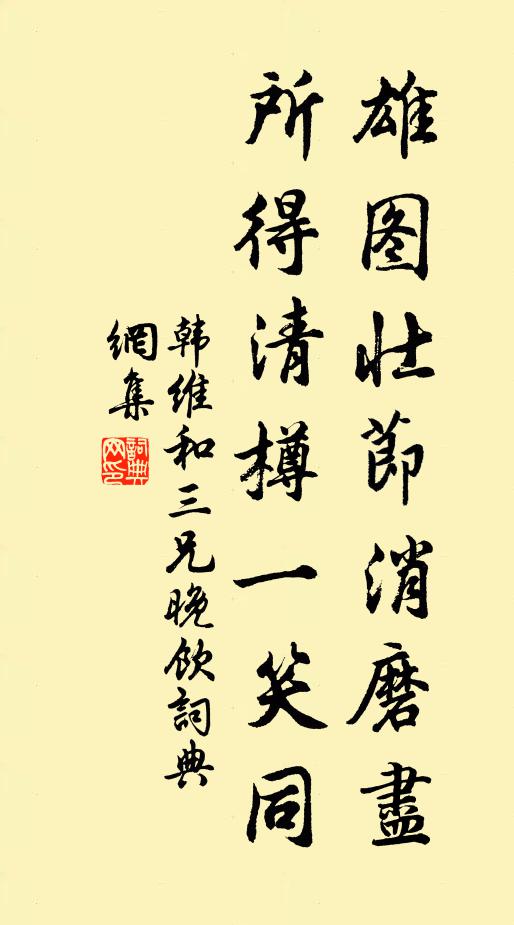 雄图壮節消磨盡
所得清樽一笑同
韩維和三兄晚飲詞典
網集
詞典
网印